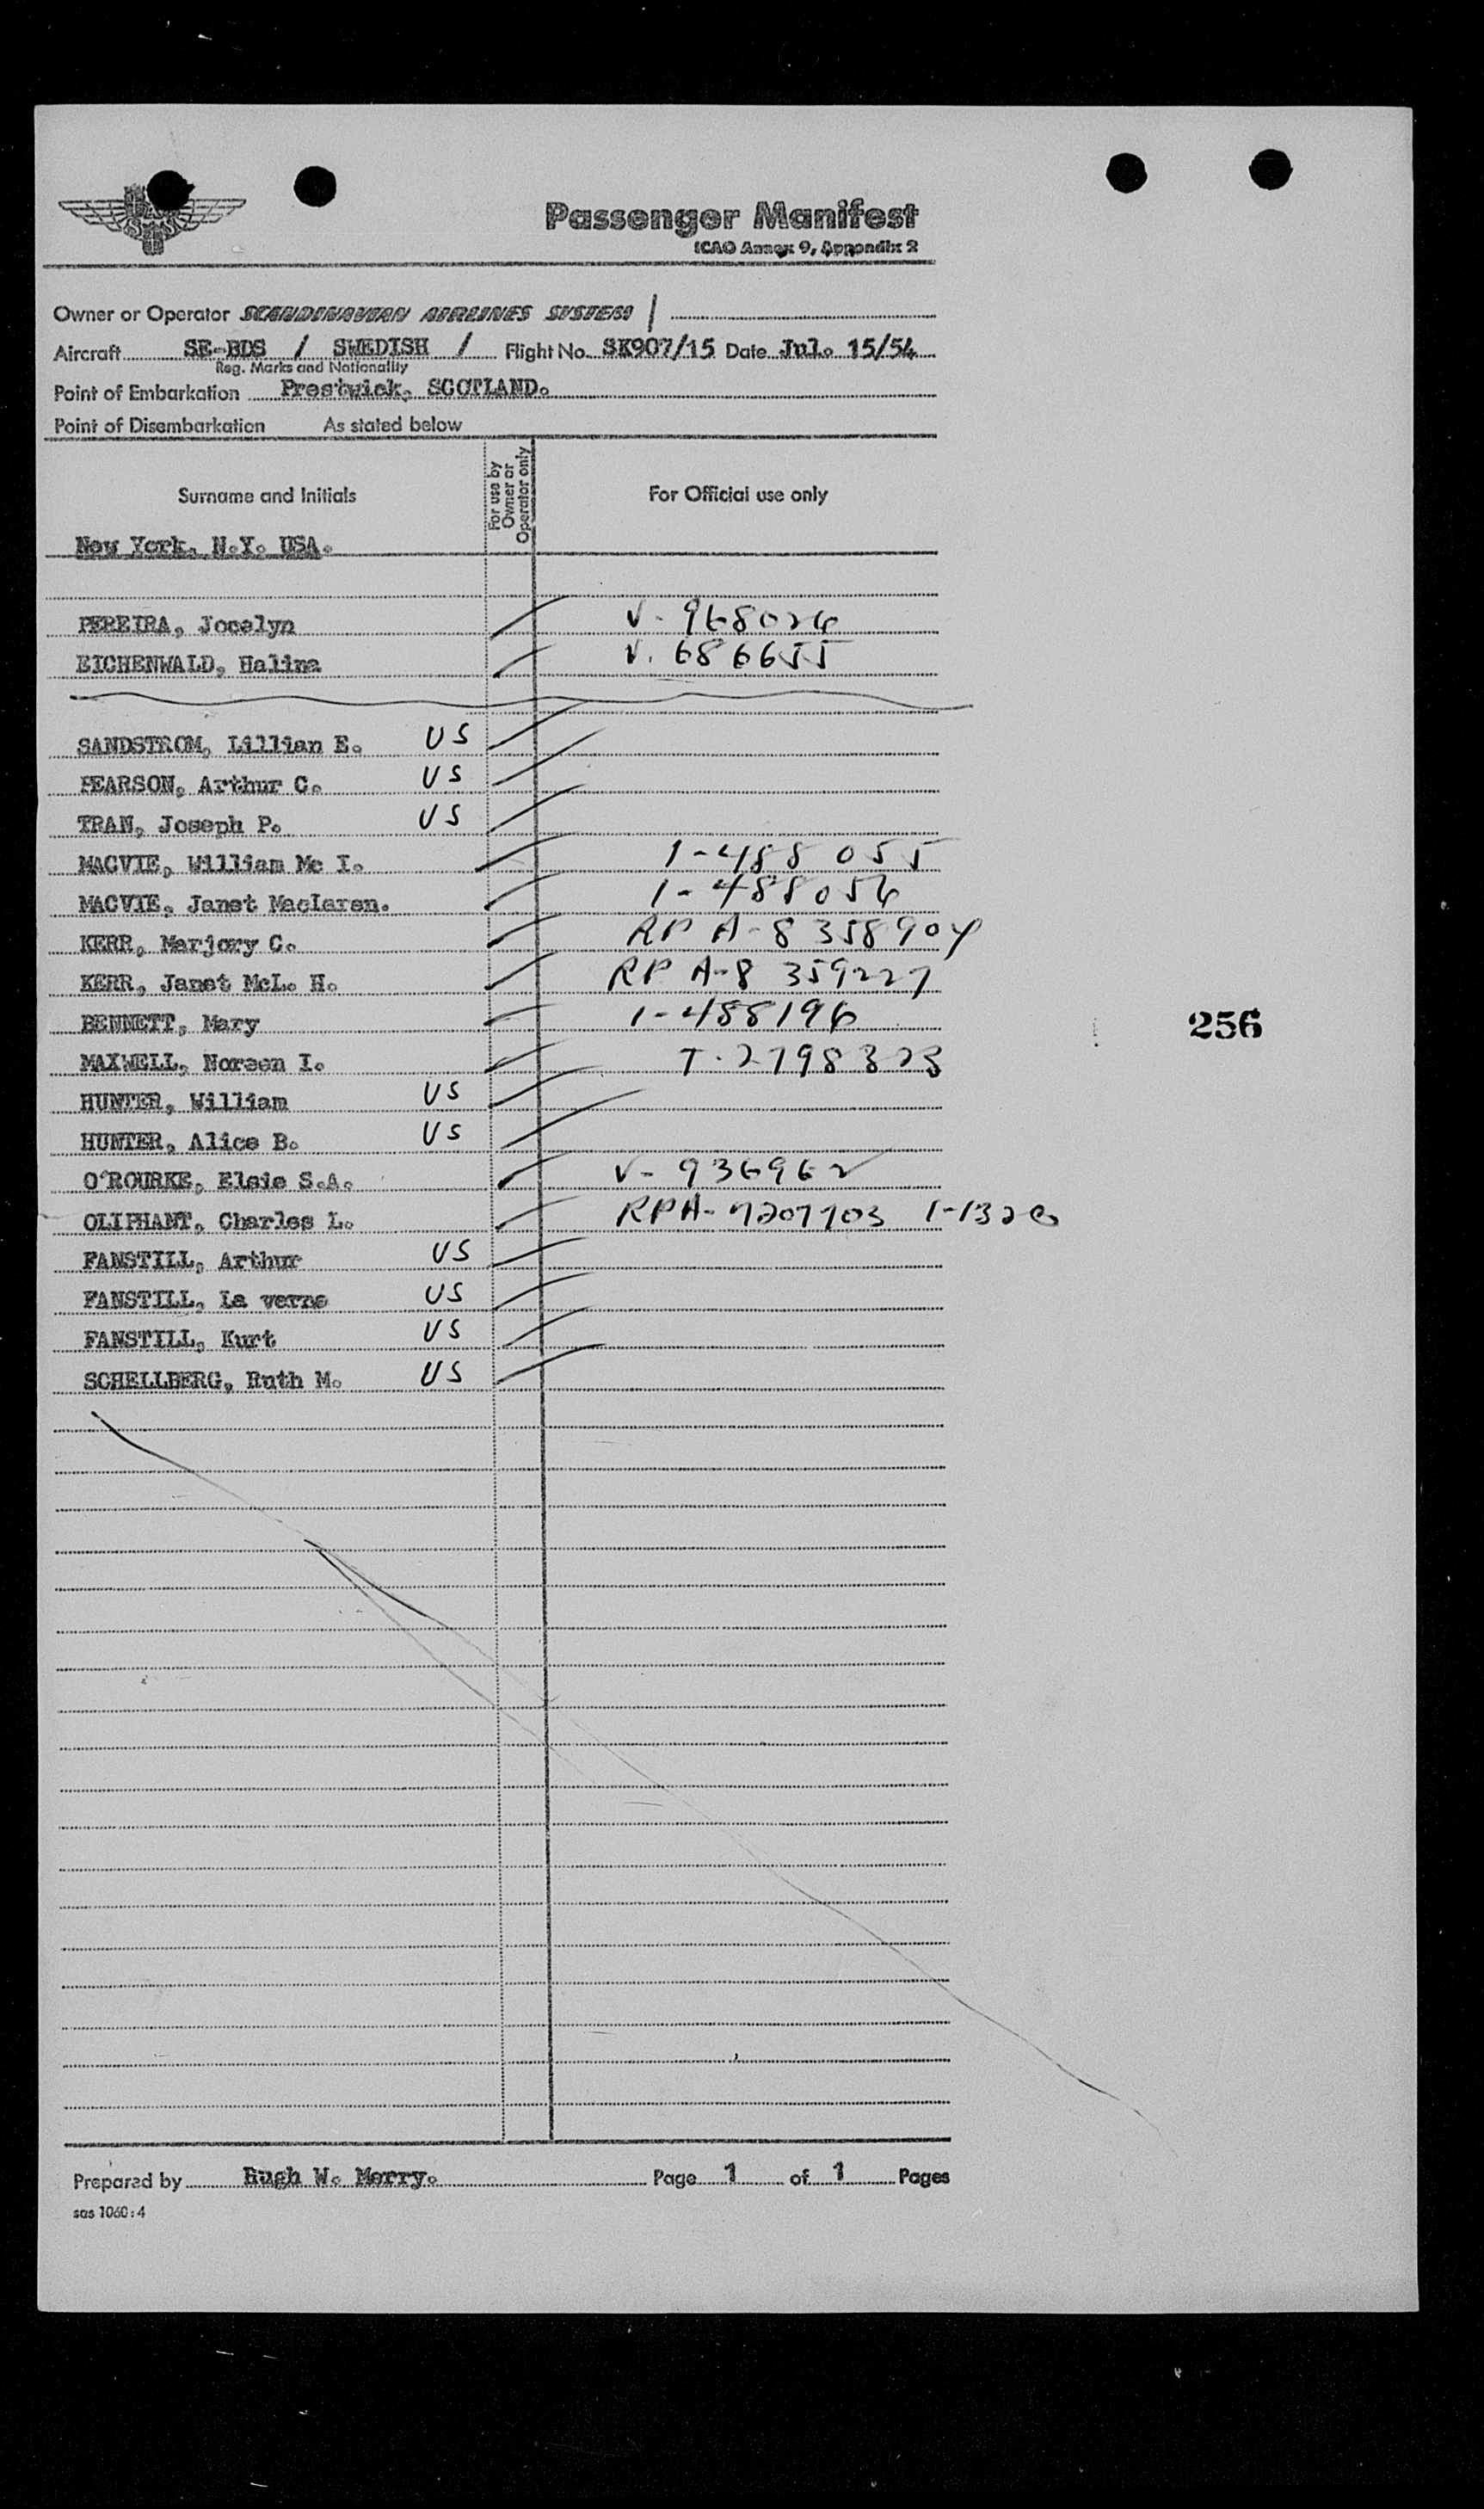 Passenger Manifest
ICAO Annex 9, Appendix 2
Owner or Operator SCANDINAVIAN AIRLINES SYSTEM /
Aircraft SE-BDS / SWEDISH / Flight No. SK907/15 Date Jul. 15/54
Reg. Marks and Nationality
Point of Embarkation Prestwick, SCOTLAND.
Point of Disembarkation As stated below
Surname and Initials For use by Owner or Operator only For Official use only
New York, N.Y. USA.
PEREIRA, Jocelyn V- 968026
EICHENWALD, Halina V. 686655
SANDSTROM, Lillian E. US
PEARSON, Arthur C. US
TRAN, Joseph P. US
MACVIE, William Mc I. 1-488 055
MACVIE, Janet Maclaren. 1-488056
KERR, Marjory C. RP A-8 358904
KERR, Janet McL. H. RP A-8 359227
BENNETT, Mary 1-488196
MAXWELL, Noreen I. T-2798323
HUNTER, William US
HUNTER, Alice B. US
O'ROURKE, Elsie S.A. V- 936962
OLIPHANT, Charles L. RPA-7207703 1-132
FANSTILL, Arthur US
FANSTILL, La verne US
FANSTILL, Kurt US
SCHELLBERG, Ruth M. US
256
Prepared by Hugh W. Merry. Page 1 of 1 Pages
sas 1060:4